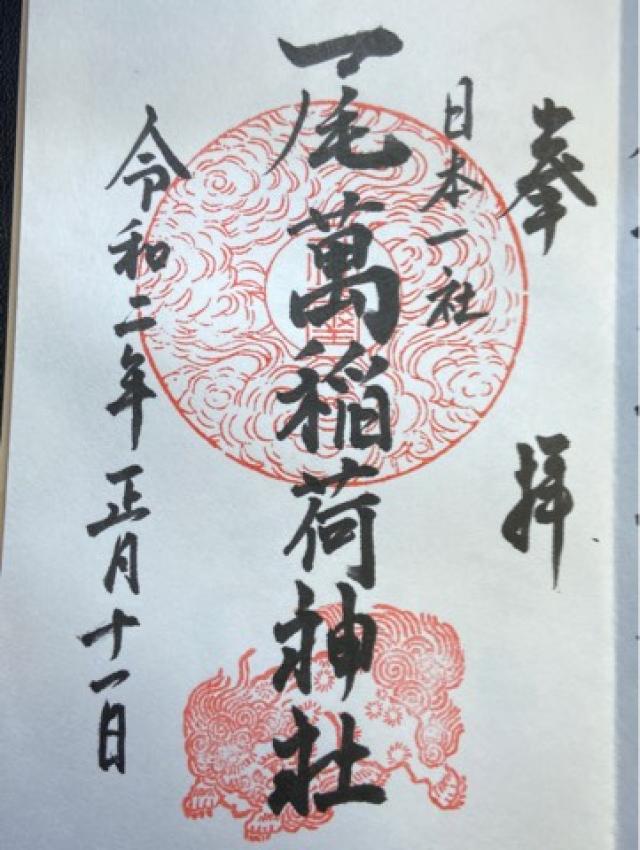 奉拝
日本一社
一尾萬稲荷神社
令和二年正月十一日